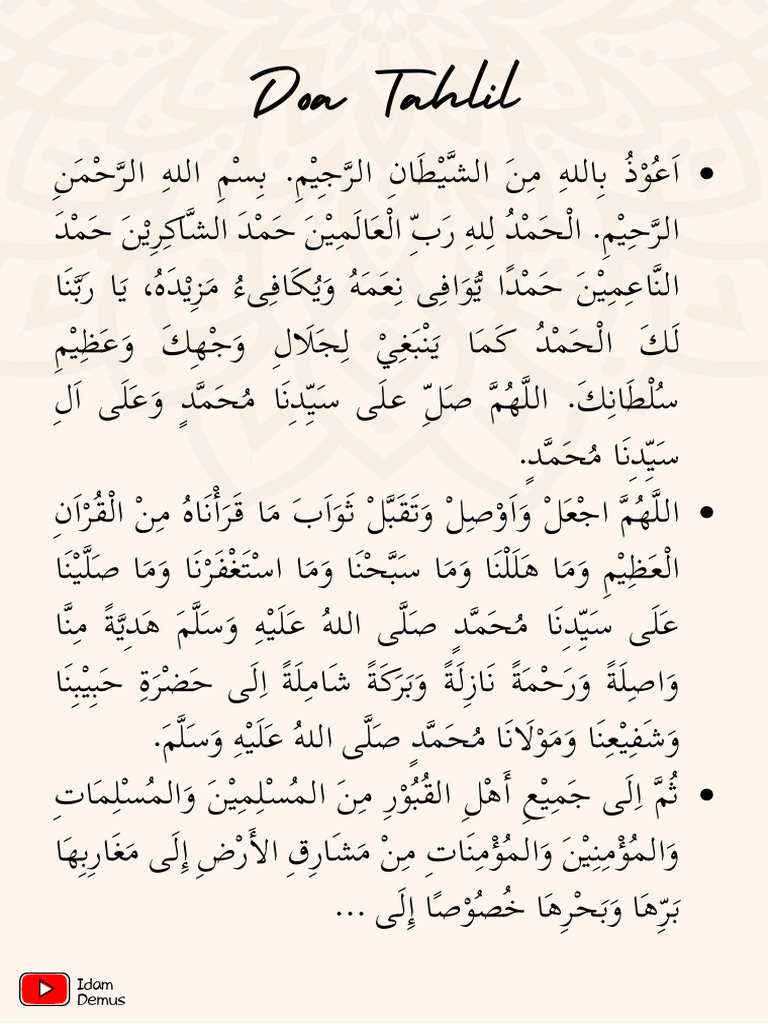 Doa Tahlil
• اَعُوْذُ بِاللهِ مِنَ الشَّيْطَانِ الرَّجِيْمِ. بِسْمِ اللهِ الرَّحْمَنِ
الرَّحِيْمِ. الْحَمْدُ لِلهِ رَبِّ الْعَالَمِيْنَ حَمْدَ الشَّاكِرِيْنَ حَمْدَ
النَّاعِمِيْنَ حَمْدًا يُّوَافِى نِعَمَهُ وَيُكَافِىءُ مَزِيْدَهُ، يَا رَبَّنَا
لَكَ الْحَمْدُ كَمَا يَنْبَغِيْ لِجَلَالِ وَجْهِكَ وَعَظِيْمِ
سُلْطَانِكَ. اللَّهُمَّ صَلِّ علَى سَيِّدِنَا مُحَمَّدٍ وَعَلَى اَلِ
سَيِّدِنَا مُحَمَّدٍ.
• اللَّهُمَّ اجْعَلْ وَاَوْصِلْ وَتَقَبَّلْ ثَوَابَ مَا قَرَأْنَاهُ مِنْ الْقُرْاَنِ
الْعَظِيْمِ وَمَا هَلَلْنَا وَمَا سَبَّحْنَا وَمَا اسْتَغْفَرْنَا وَمَا صَلَّيْنَا
عَلَى سَيِّدِنَا مُحَمَّدٍ صَلَّى اللهُ عَلَيْهِ وَسَلَّمَ هَدِيَّةً مِنَّا
وَاصِلَةً وَرَحْمَةً نَازِلَةً وَبَرَكَةً شَامِلَةً اِلَى حَضْرَةِ حَبِيْبِنَا
وَشَفِيْعِنَا وَمَوْلَانَا مُحَمَّدٍ صَلَّى اللهُ عَلَيْهِ وَسَلَّمَ.
• ثُمَّ اِلَى جَمِيْعِ أَهْلِ القُبُوْرِ مِنَ المُسْلِمِيْنَ وَالمُسْلِمَاتِ
وَالمُؤْمِنِيْنَ وَالمُؤْمِنَاتِ مِنْ مَشَارِقِ الأَرْضِ إِلَى مَغَارِبِهَا
بَرِّهَا وَبَحْرِهَا خُصُوْصًا إِلَى ...
Idam
Demus